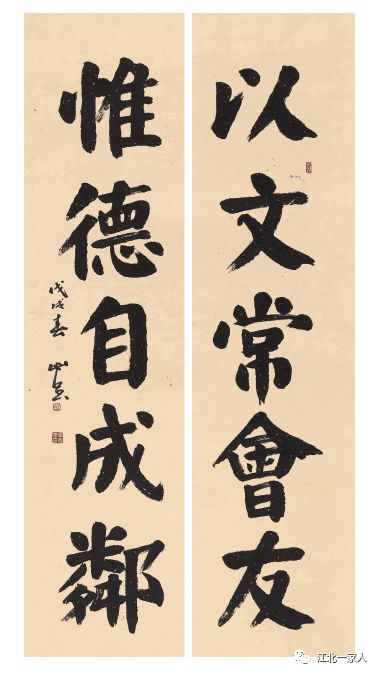 以文常會友
惟德自成鄰
戊戌春
江北一家人